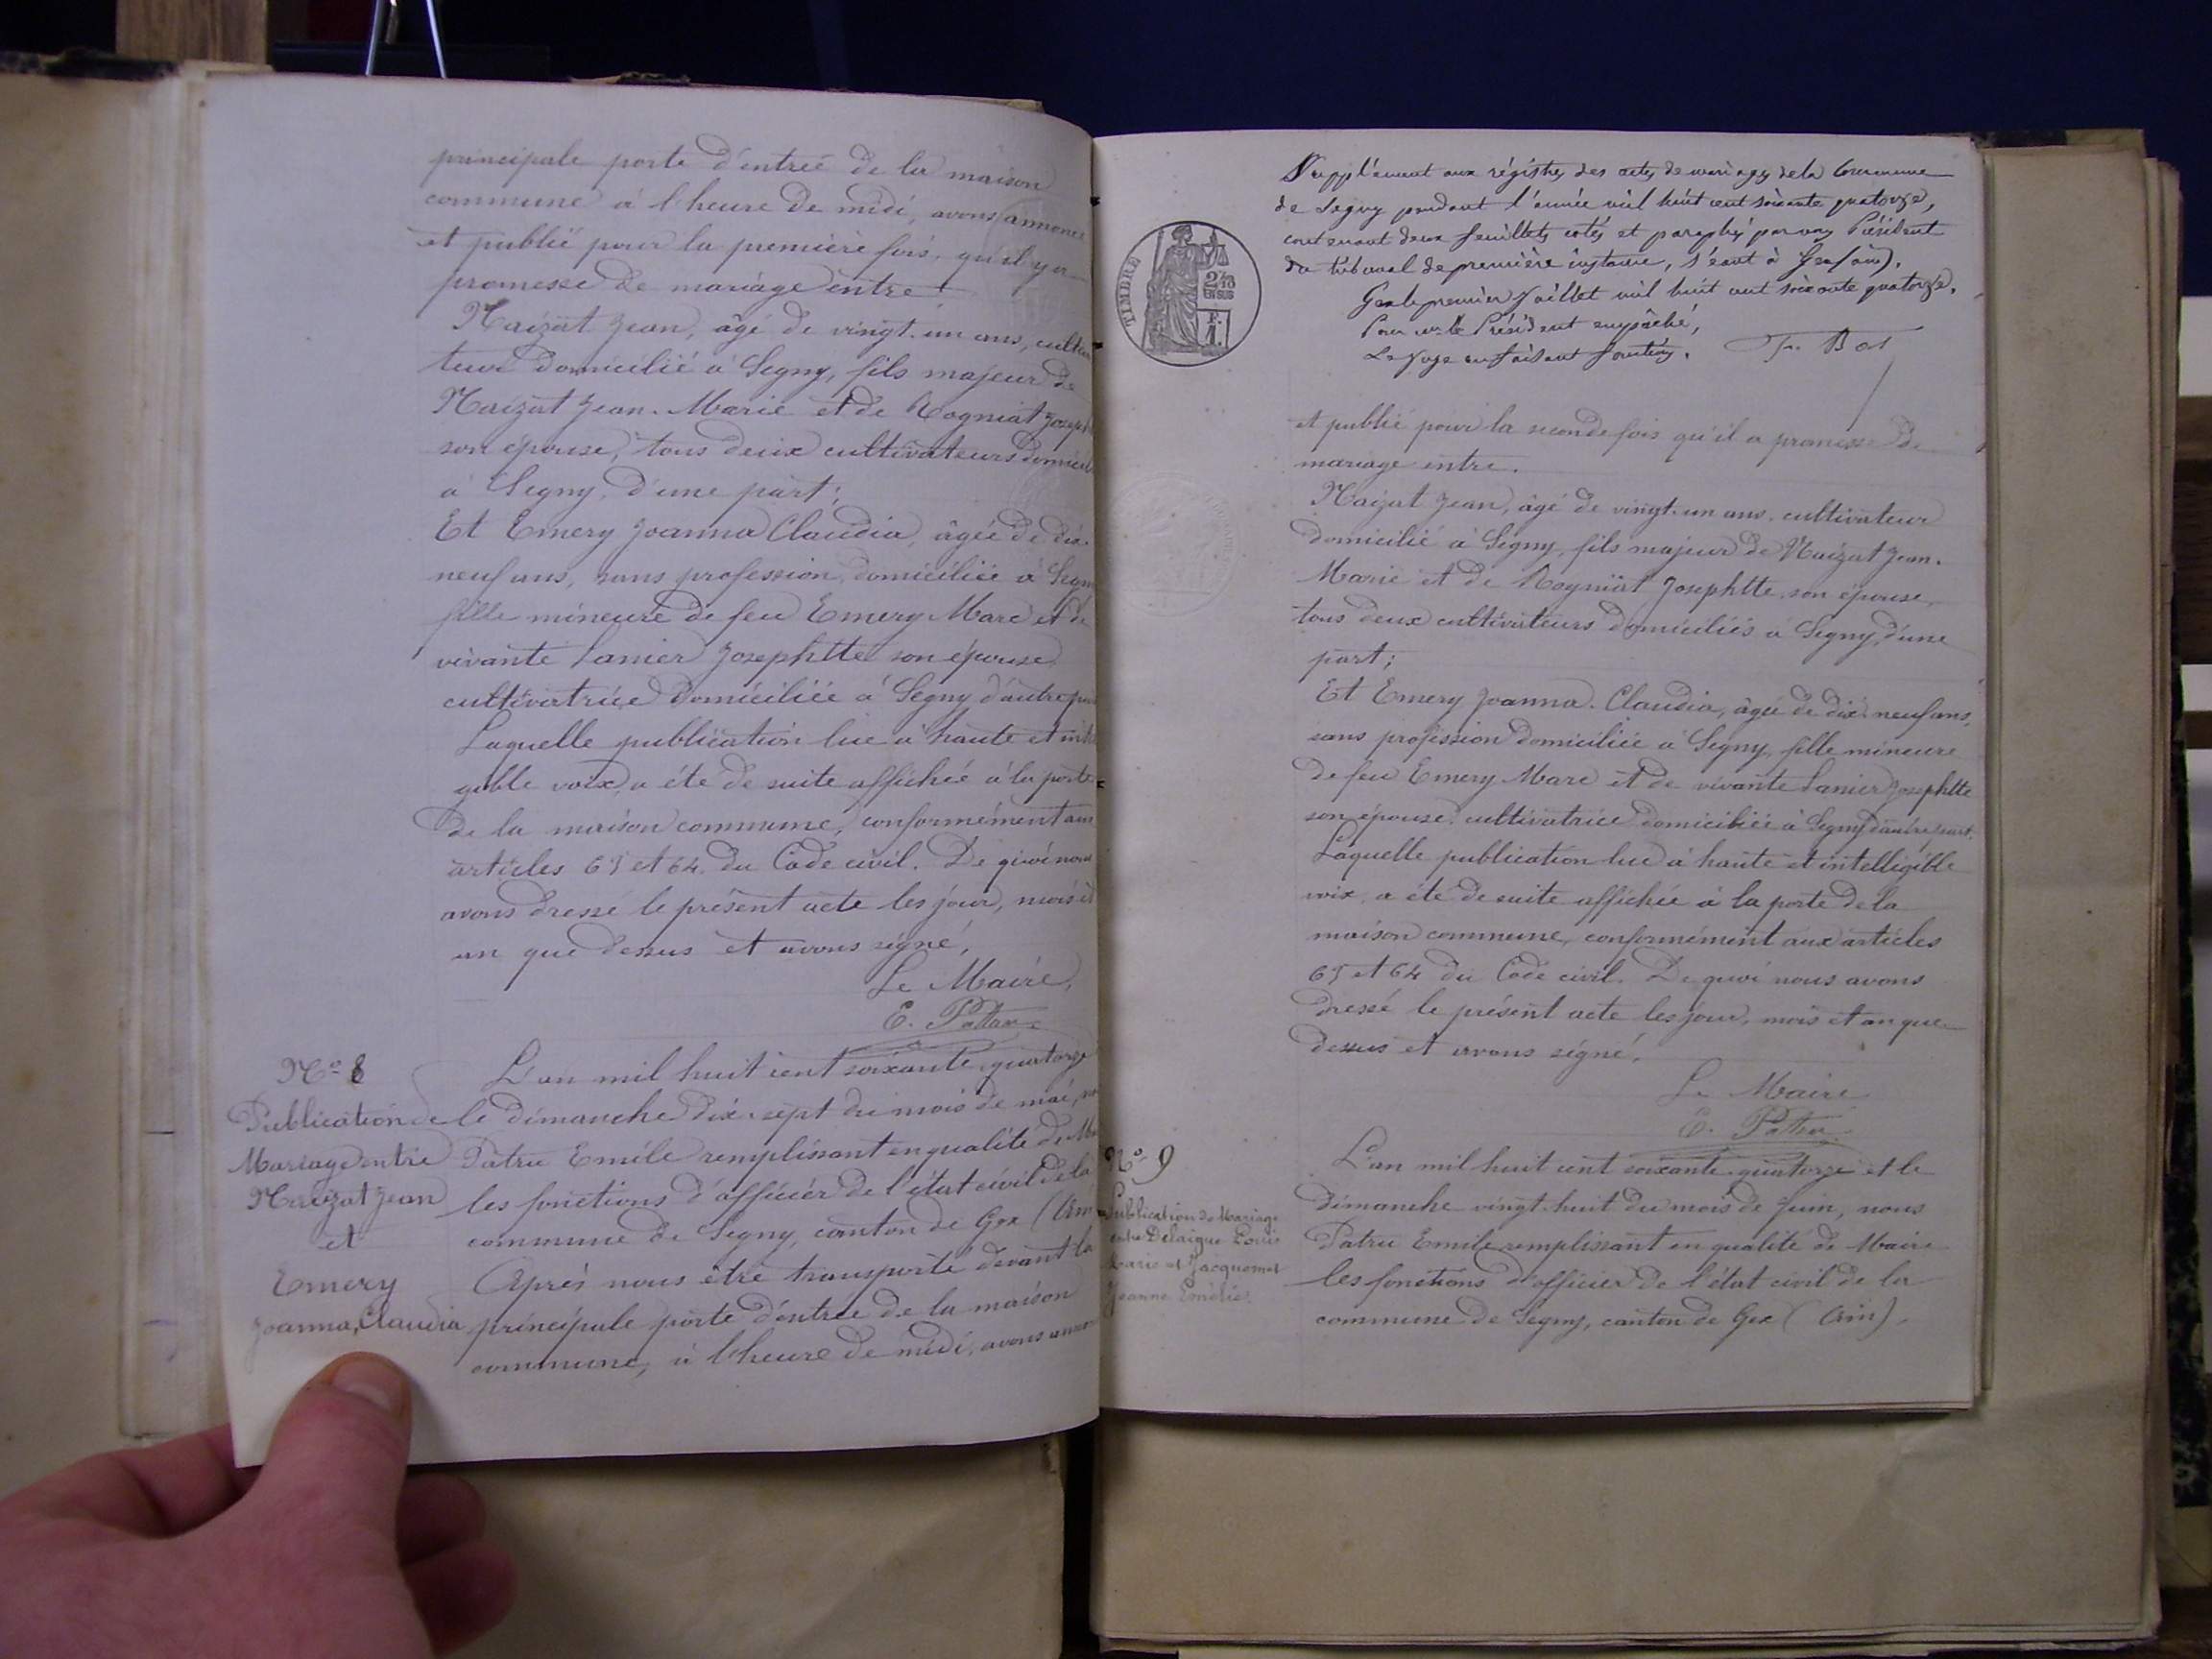 principale porte d'entrée de la maison
commune à l'heure de midi, avons annoncé
et publié pour la première fois, qu'il y a
promesse de mariage entre
Naizat Jean, âgé de vingt-un ans, culti
teur domicilié à Segny, fils majeur de
Naizat Jean-Marie et de Rogniat Joseph
son épouse, tous deux cultivateurs domicil
à Segny, d'une part;
Et Emery Joanna Claudia, âgée de dix-
neuf ans, sans profession, domiciliée à Segny
fille mineure de feu Emery Marc et de
vivante Lanier Josephtte son épouse
cultivatrice domiciliée à Segny d'autre part
Laquelle publication lue à haute et intelli
gible voix, a été de suite affichée à la porte
de la maison commune, conformément aux
articles 63 et 64 du Code civil. De quoi nous
avons dressé le présent acte les jour, mois et
an que dessus et avons signé.
Le Maire,
E. Patru
No 8
Publication de
Mariage entre
Naizat Jean
et
Emery
Joanna, Claudia
L'an mil huit cent soixante-quatorze
le dimanche dix-sept du mois de mai, nous
Patru Emile remplissant en qualité de Ma
les fonctions d'officier de l'état civil de la
commune de Segny, canton de Gex (Ain
Après nous être transporté devant la
principale porte d'entrée de la maison
commune, à l'heure de midi, avons annon
Supplément aux régistres des actes de mariages de la Commune
de Segny pendant l'année mil huit cent soixante quatorze,
contenant deux feuillets cotés et paraphés par nous Président
du tribunal de première instance, séant à Gex (ain).
Gex le premier Juillet mil huit cent soixante quatorze.
Pour mr le Président empêché,
Le Juge en faisant fonctions.
TIMBRE
2/10
EN SUS
F.
1.
et publié pour la seconde fois qu'il a promesse de
mariage entre.
Naizat Jean, âgé de vingt-un ans, cultivateur
domicilié à Segny, fils majeur de Naizat Jean-
Marie et de Rogniat Josephtte, son épouse,
tous deux cultivateurs domiciliés à Segny, d'une
part;
Et Emery Joanna-Claudia, âgée de dix-neuf ans,
sans profession domiciliée à Segny, fille mineure
de feu Emery Marc et de vivante Lanier Josephtte
son épouse, cultivatrice domiciliée à Segny d'autre part.
Laquelle publication lue à haute et intelligible
voix, a été de suite affichée à la porte de la
maison commune, conformément aux articles
63 et 64 du Code civil. De quoi nous avons
dressé le présent acte les jour, mois et an que
dessus et avons signé.
Le Maire
E. Patru
No 9
Publication de Mariage
entre Delaigue Louis
Marie et Jacquemet
Jeanne Emélie.
L'an mil huit cent soixante-quatorze et le
dimanche vingt-huit du mois de Juin, nous
Patru Emile remplissant en qualité de Maire
les fonctions d'officier de l'état civil de la
commune de Segny, canton de Gex (Ain).